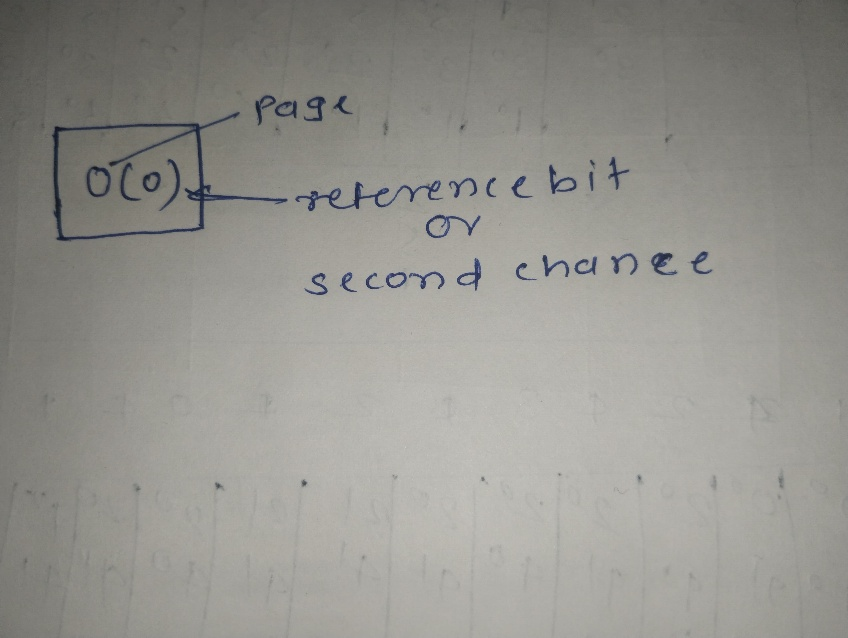 page
0(0)
reference bit
or
second chance